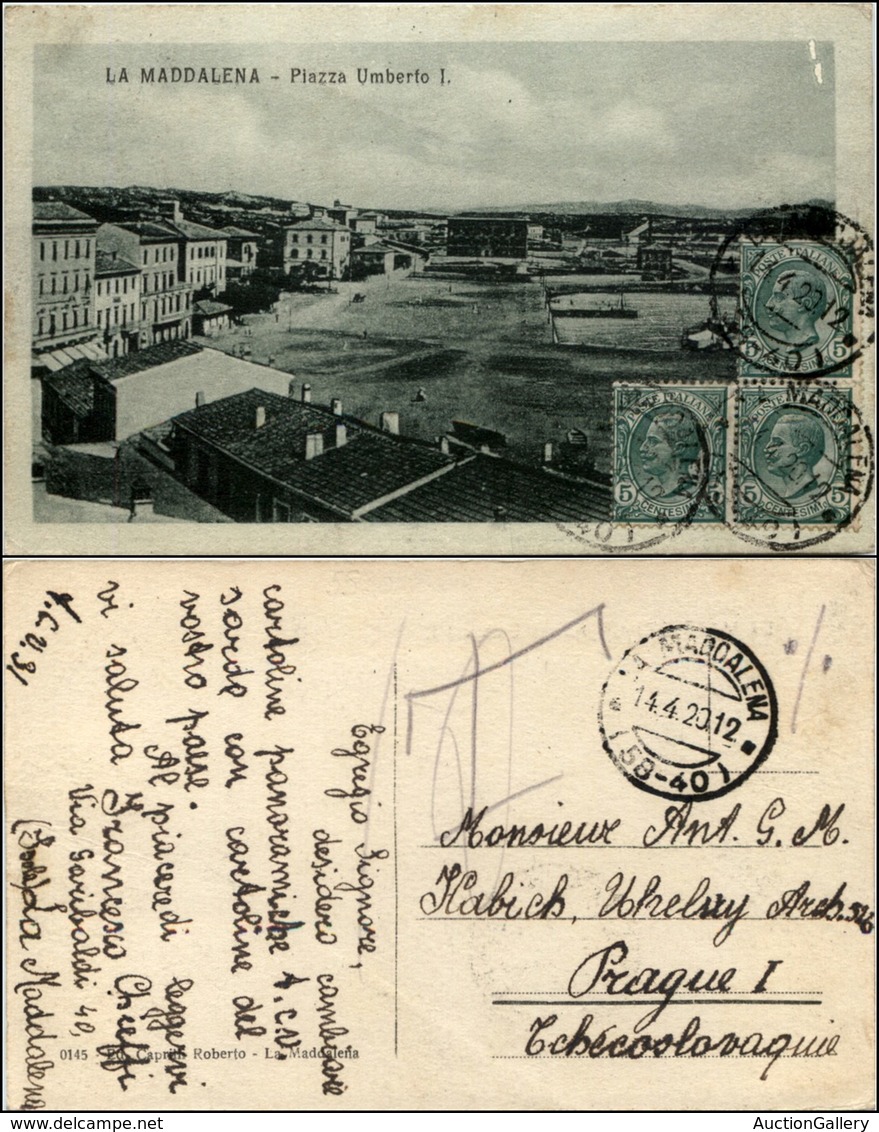 LA MADDALENA - Piazza Umberto I.
POSTE ITALIANE
5 5
CENTESIMI
POSTE ITALIANE
5 5
CENTESIMI
POSTE ITALIANE
5 5
CENTESIMI
Egregio Signore,
desidero cambiare
cartoline panoramiche t.c.v.
sarde con cartoline del
vostro paese.
Al piacere di leggervi
vi saluta Francesco
Via Garibaldi 40,
La Maddalena
LA MADDALENA
14.4.20.12
(58-40)
Monsieur Ant. G. M.
Habich, Uhelny
Prague I
Tchécoslovaquie
0145 - Ed. Roberto - La Maddalena
AuctionGallery